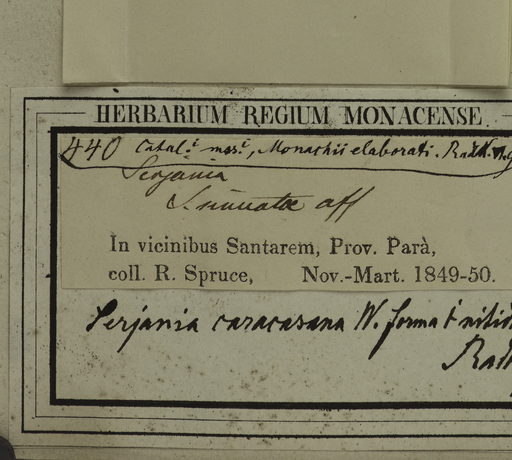 HERBARIUM REGIUM MONACENSE
440 Catal.i msr.i, Monachii elaborati. Radlk.
Serjania
S. sinuatae aff
In vicinibus Santarem, Prov. Parà,
coll. R. Spruce, Nov.-Mart. 1849-50.
Serjania caracasana W. forma
Radl